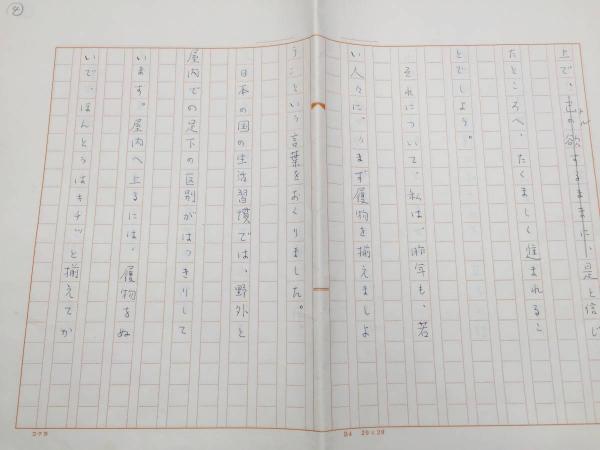 ④
上で、走の欲するままに、是と信じ
たところへ、たくましく進まれるこ
とでしょう。
それについて、私は、昨年も、若
い人々に、「まず履物を揃えましよ
う」という言葉をおくりました。
日本の国の生活習慣では、野外と
屋内での足下の区別がはっきりして
います。屋内へ上るには、履物をぬ
いで、ほんとうはキチッと揃えてか
コクヨ
20×20